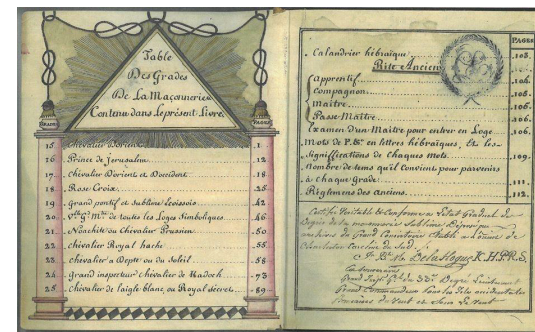 Table
Des Grades
De La Maçonnerie
Contenu dans Le présent Livre.
Grades Pages
15. Chevalier Dorient 1.
16. Prince de Jerusalem. 12
17. Chevalier Dorient et Doccident 18
18. Rose Croix 25
19. Grand pontif et Sublime Ecossois 42
20. Vble Gd Mtre de toutes les Loges Simboliques 46
21. Noachite ou Chevalier Prussien 50
22. Chevalier Royal hache 55
23. Chevalier adepte ou du Soleil 58
24. Grand inspecteur Chevalier de Kadoch 73
25. Chevalier de laigle blanc ou Royal Secret 89
PAGES
Calandrier hébraïque 103.
Rite Ancien
Apprentif 104.
Compagnon 105
maitre 105
Passe Maitre 106.
Examen d'un Maitre pour entrer en Loge 106.
Mots de P. en lettres hébraïques, Et les
Significations de Chaques mots 109.
Nombre de tems qu'il Convient pour parvenir
à chaque Grade 111.
Réglemens des Anciens. 112.
Certifié Veritable & Conforme
Degrés de la maçonnerie Sublime
archives du Grand
Charleston Caroline du Sud.
Delahogue K.H. P.R.S.
Souverain
du 33e Degré Lieutenant
Grand Commandeur